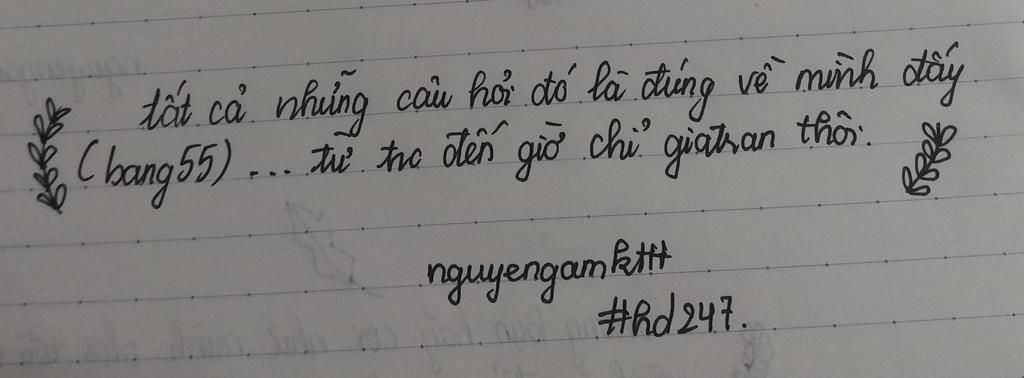 tất cả những câu hỏi đó là đúng về mình đấy
(bang55) ... từ trc đến giờ chỉ giatran thôi.
nguyengamkttt
#hd247.